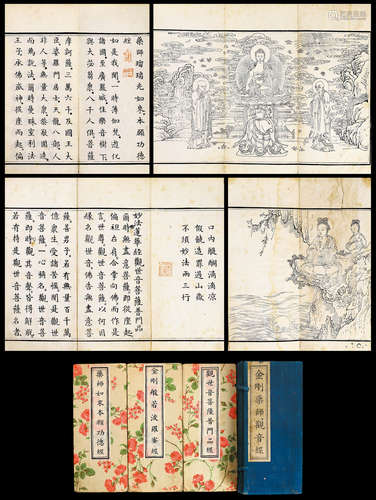 藥師瑠璃光如來本願功德
經
如是我聞一時薄伽梵遊化
諸國至廣嚴城住樂音樹下
與大苾芻衆八千人俱菩薩
摩訶薩三萬六千及國王大
臣婆羅門居士天龍八部人
非人等無量大衆恭敬圍繞
而為說法爾時曼殊室利法
王子承佛威神從座而起偏
口內醍醐滴滴涼
假饒造罪過山嶽
不須妙法兩三行
妙法蓮華經觀世音菩薩普門品
爾時無盡意菩薩即從座起
偏袒右肩合掌向佛而作是
言世尊觀世音菩薩以何因
緣名觀世音佛告無盡意菩
薩善男子若有無量百千萬
億衆生受諸苦惱聞是觀世
音菩薩一心稱名觀世音菩
薩即時觀其音聲皆得解脫
若有持是觀世音菩薩名者
金剛藥師觀音經
觀世音菩薩普門品經
金剛般若波羅蜜經
藥師如來本願功德經